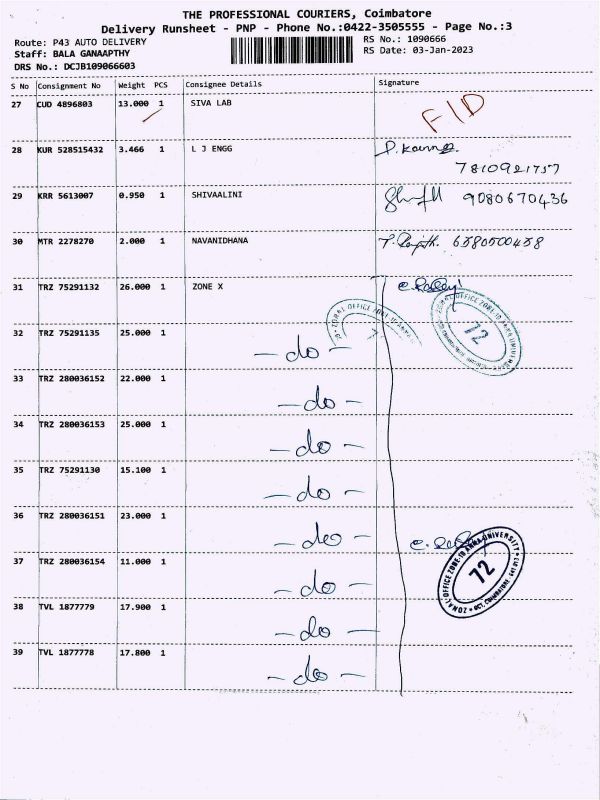 THE PROFESSIONAL COURIERS, Coimbatore
Delivery Runsheet - PNP - Phone No.:0422-3505555 - Page No.:3
Route: P43 AUTO DELIVERY RS No.: 1090666
Staff: BALA GANAAPTHY RS Date: 03-Jan-2023
DRS No.: DCJB109066603
S No Consignment No Weight PCS Consignee Details Signature
27 CUD 4896803 13.000 1 SIVA LAB
28 KUR 528515432 3.466 1 L J ENGG
7810921757
29 KRR 5613007 0.950 1 SHIVAALINI 9080670436
30 MTR 2278270 2.000 1 NAVANIDHANA 6380500458
31 TRZ 75291132 26.000 1 ZONE X
32 TRZ 75291135 25.000 1 - do -
33 TRZ 280036152 22.000 1 - do -
34 TRZ 280036153 25.000 1 - do -
35 TRZ 75291130 15.100 1 - do -
36 TRZ 280036151 23.000 1 - do -
37 TRZ 280036154 11.000 1 - do -
38 TVL 1877779 17.900 1 - do -
39 TVL 1877778 17.800 1 - do -
72
ZONAL OFFICE ZONE-10 ANNA UNIVERSITY
72